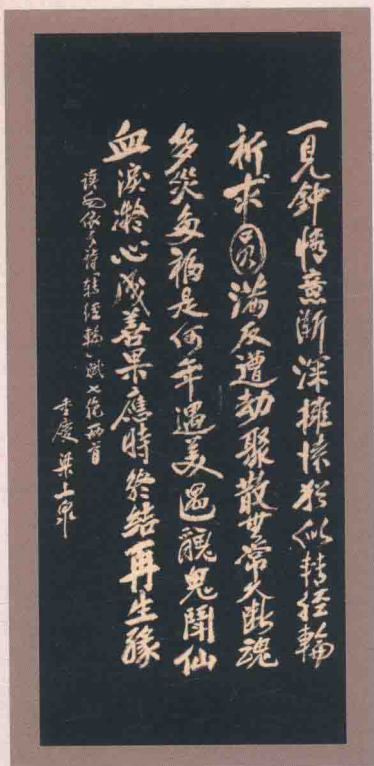 一見鍾情意漸深擁懷猶似轉经輪
祈求圓滿反遭劫聚散無常久断魂
多災多禍是何年遇美遇醜鬼鬪仙
血淚凝心成善果應時終結再生緣
读依诗「转经輪」賦七絶两首
重慶 梁上泉